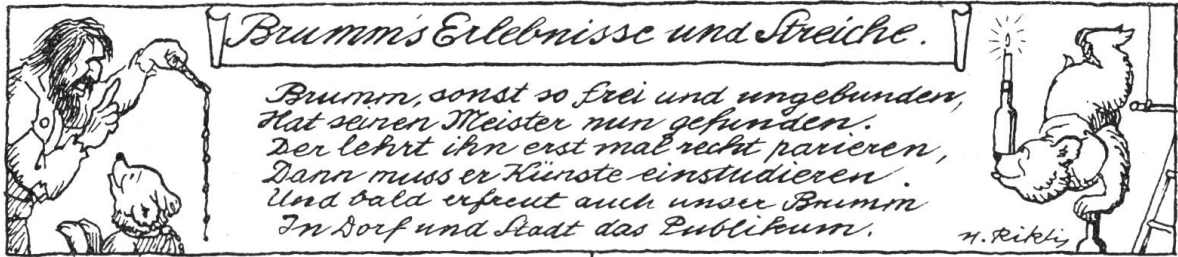 Brumm's Erlebnisse und Streiche.
Brumm, sonst so frei und ungebunden,
Hat seinen Meister nun gefunden.
Der lehrt ihn erst mal recht parieren,
Dann muss er Künste einstudieren.
Und bald erfreut auch unser Brumm
In Dorf und Stadt das Publikum.
H. Rikli